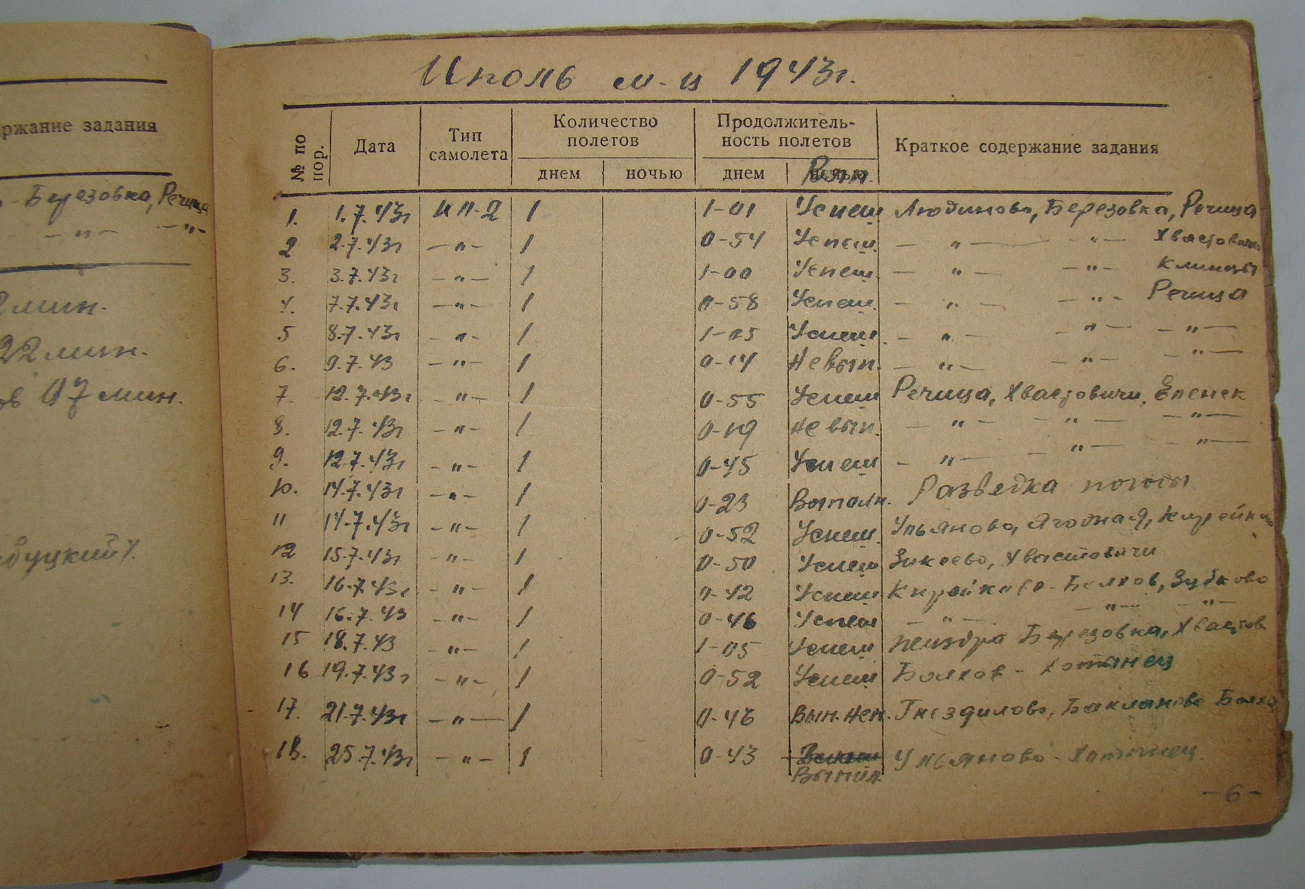 ржание задания
Березовка, Речица
— „ — — „ —
мин.
22 мин.
ов 07 мин.
Июль м-ц 1943г.
№ по пор. Дата Тип самолета Количество полетов Продолжитель-ность полетов Краткое содержание задания
днем ночью днем
1. 1.7.43г ИЛ-2 1 1-01 Успеш Людиново, Березовка, Речица
2 2.7.43г — „ — 1 0-54 Успеш. — „ — — „ — Хвастовичи
3. 3.7.43г — „ — 1 1-00 Успеш. — „ — — „ — Клинцы
4. 7.7.43г — „ — 1 0-58 Успеш. — „ — — „ — Речица
5 8.7.43г — „ — 1 1-05 Успеш. — „ — — „ — — „ —
6. 9.7.43 — „ — 1 0-14 Невып. — „ — — „ — — „ —
7. 12.7.43г — „ — 1 0-55 Успеш Речица, Хвастовичи, Еленск
8. 12.7.43г — „ — 1 0-19 Невып. — „ — — „ — — „ —
9. 12.7.43г — „ — 1 0-45 Успеш — „ — — „ — — „ —
10. 14.7.43г — „ — 1 0-23 Выполн. Разведка погоды
11 14.7.43г — „ — 1 0-52 Успеш. Ульяново, Ягодная,
12 15.7.43г — „ — 1 0-50 Успеш Зикеево, Хвастовичи
13. 16.7.43г — „ — 1 0-42 Успеш Болхов, Зубково
14 16.7.43 — „ — 1 0-46 Успеш — „ — — „ — — „ —
15 18.7.43 — „ — 1 1-05 Успеш Березовка, Хвастов
16 19.7.43г — „ — 1 0-52 Успеш Болхов - Хотынец
17. 21.7.43г — „ — 1 0-46 Вып. Гнездилово, Бакланово Болхо
18. 25.7.43г — „ — 1 0-43 Ульяново - Хотынец.
Выпол
-6-